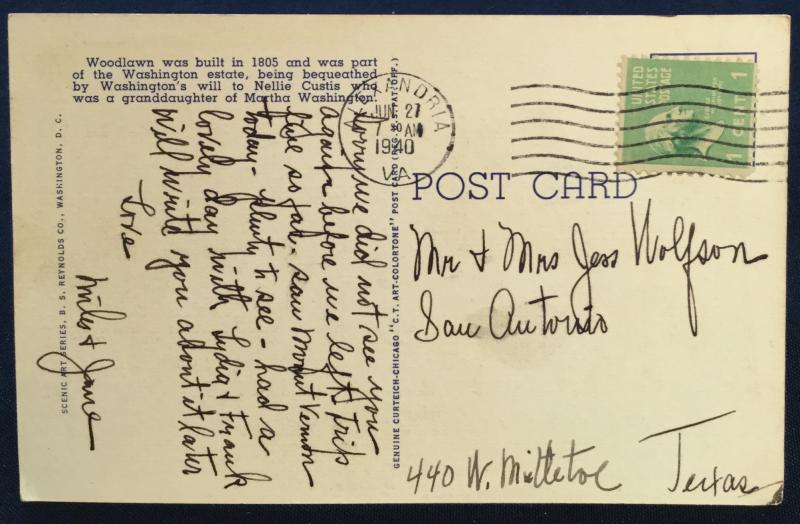 Woodlawn was built in 1805 and was part
of the Washington estate, being bequeathed
by Washington's will to Nellie Custis who
was a granddaughter of Martha Washington.
Sorry we did not see you
again before we left trip
fine so far - saw Mount Vernon
today - plenty to see - had a
lovely day with Lydia & Frank
Will write you about it later
Love
Milo & Jane
SCENIC ART SERIES, B. S. REYNOLDS CO., WASHINGTON, D. C.
GENUINE CURTEICH-CHICAGO "C.T. ART-COLORTONE" POST CARD (REG. U. S. PAT. OFF.)
ALEXANDRIA
JUN 27
7 AM
1940
VA.
UNITED
STATES
POSTAGE
1
CENT
1
POST CARD
Mr & Mrs Jess Wolfson
San Antonio
440 W. Mistletoe Texas